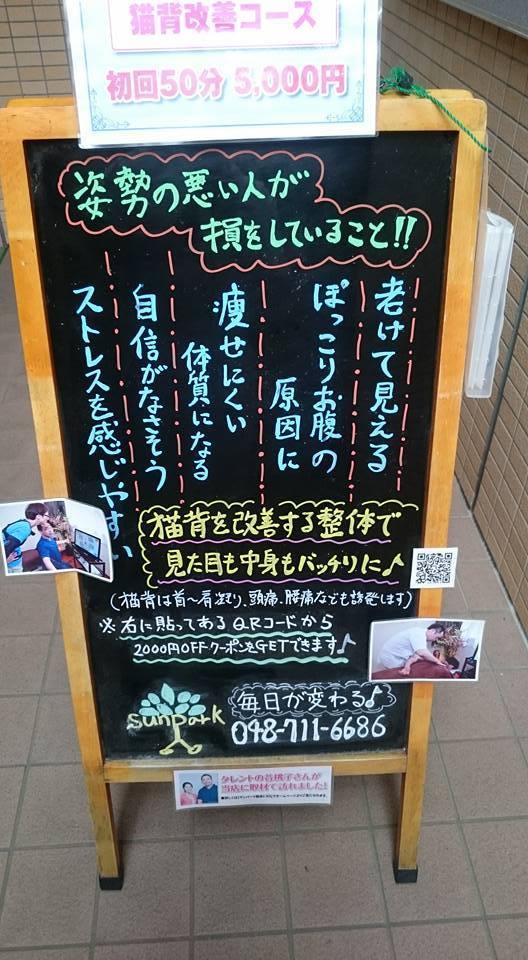 猫背改善コース
初回50分 5,000円
姿勢の悪い人が
損をしていること!!
老けて見える
ぽっこりお腹の
原因に
痩せにくい
体質になる
自信がなさそう
ストレスを感じやすい
猫背を改善する整体で
見た目も中身もバッチリに♪
(猫背は首〜肩凝り、頭痛、腰痛なども誘発します)
※右に貼ってあるQRコードから
2000円OFFクーポンをGETできます♪
sunpark
毎日が変わる♪
048-711-6686
タレントの谷桃子さんが
当店に取材で訪れました!